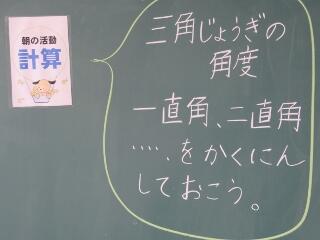 朝の活動
計算
三角じょうぎの
角度
一直角、二直角
‥‥、をかくにん
しておこう。